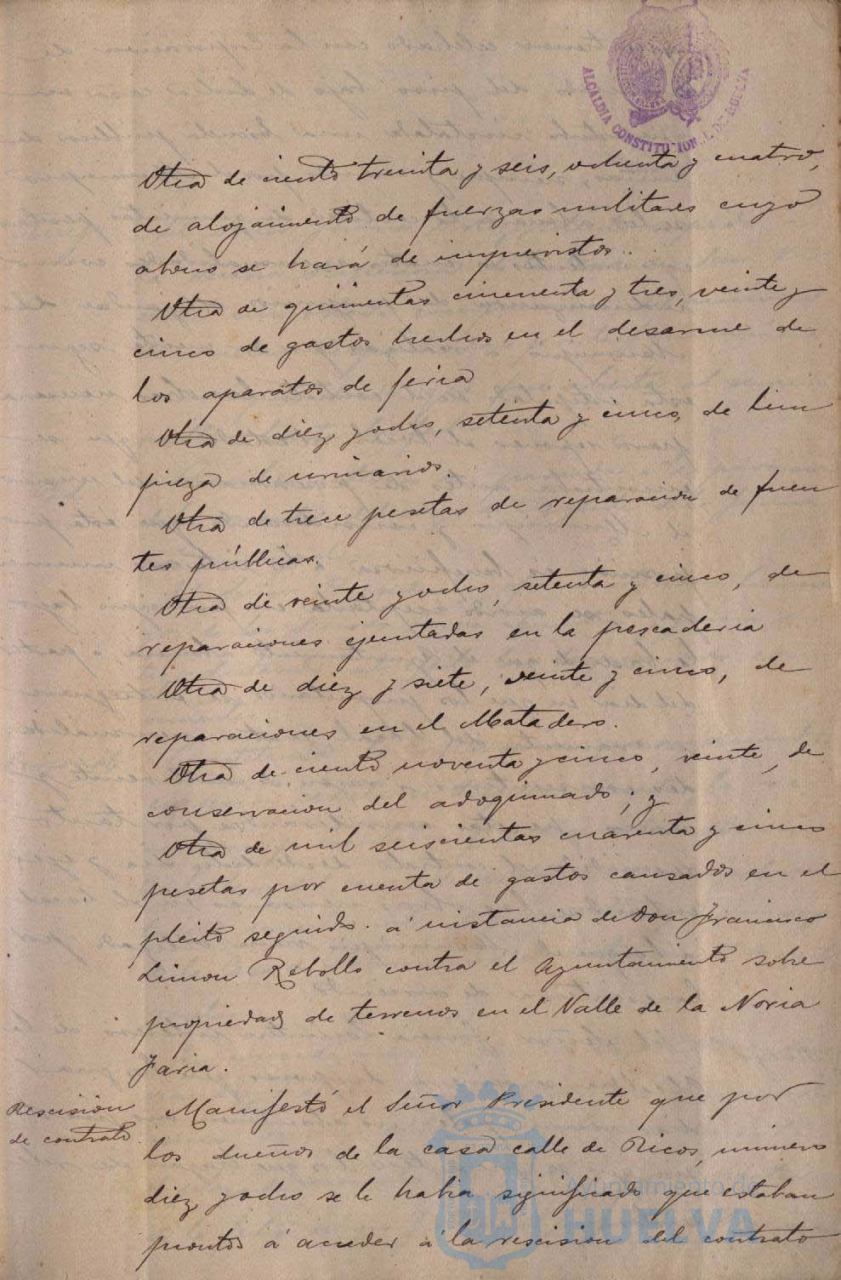 ALCALDIA CONSTITUCIONAL DE HUELVA
Otra de ciento treinta y seis, ochenta y cuatro,
de alojamiento de fuerzas militares cuyo
abono se hará de imprevistos.
Otra de quinientas cincuenta y tres, veinte y
cinco de gastos hechos en el desarme de
los aparatos de feria
Otra de diez y ocho, setenta y cinco, de lim
pieza de urinarios.
Otra de trece pesetas de reparacion de fuen
tes públicas.
Otra de veinte y ocho, setenta y cinco, de
reparaciones ejecutadas en la pescaderia
Otra de diez y siete, veinte y cinco, de
reparaciones en el Matadero.
Otra de ciento noventa y cinco, veinte, de
conservacion del adoquinado; y
Otra de mil seiscientas cuarenta y cinco
pesetas por cuenta de gastos causados en el
pleito seguido á instancia de Don Francisco
Limon Rebollo contra el Ayuntamiento sobre
propiedad de terrenos en el Valle de la Noria
Faria.
Rescision
de contrato.
Manifestó el Señor Presidente que por
los dueños de la casa calle de Ricos, número
diez y ocho se le habia significado que estaban
prontos á acceder á la rescision del contrato
Ayuntamiento de
HUELVA